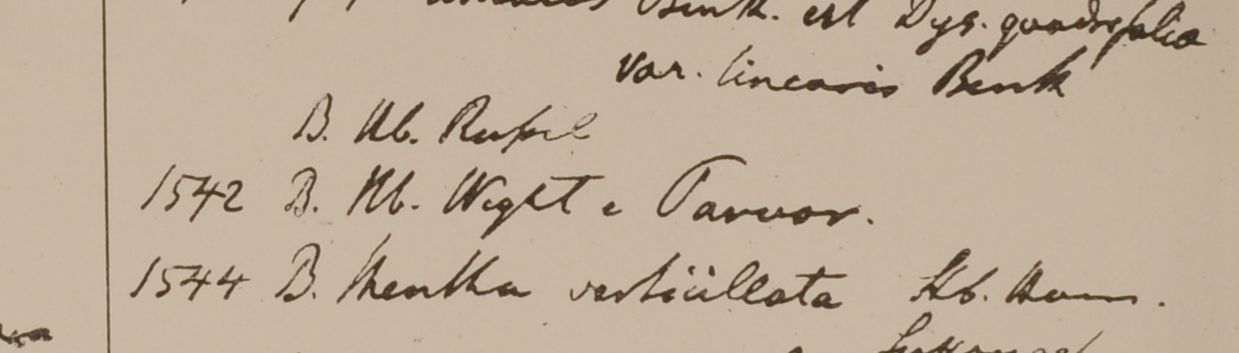 Benth. est Dys. quadrifolia
var. linearis Benth
B. Hb. Russel
1542 B. Hb. Wight e Tavoor.
1544 B. Mentha verticillata Hb. Ham.